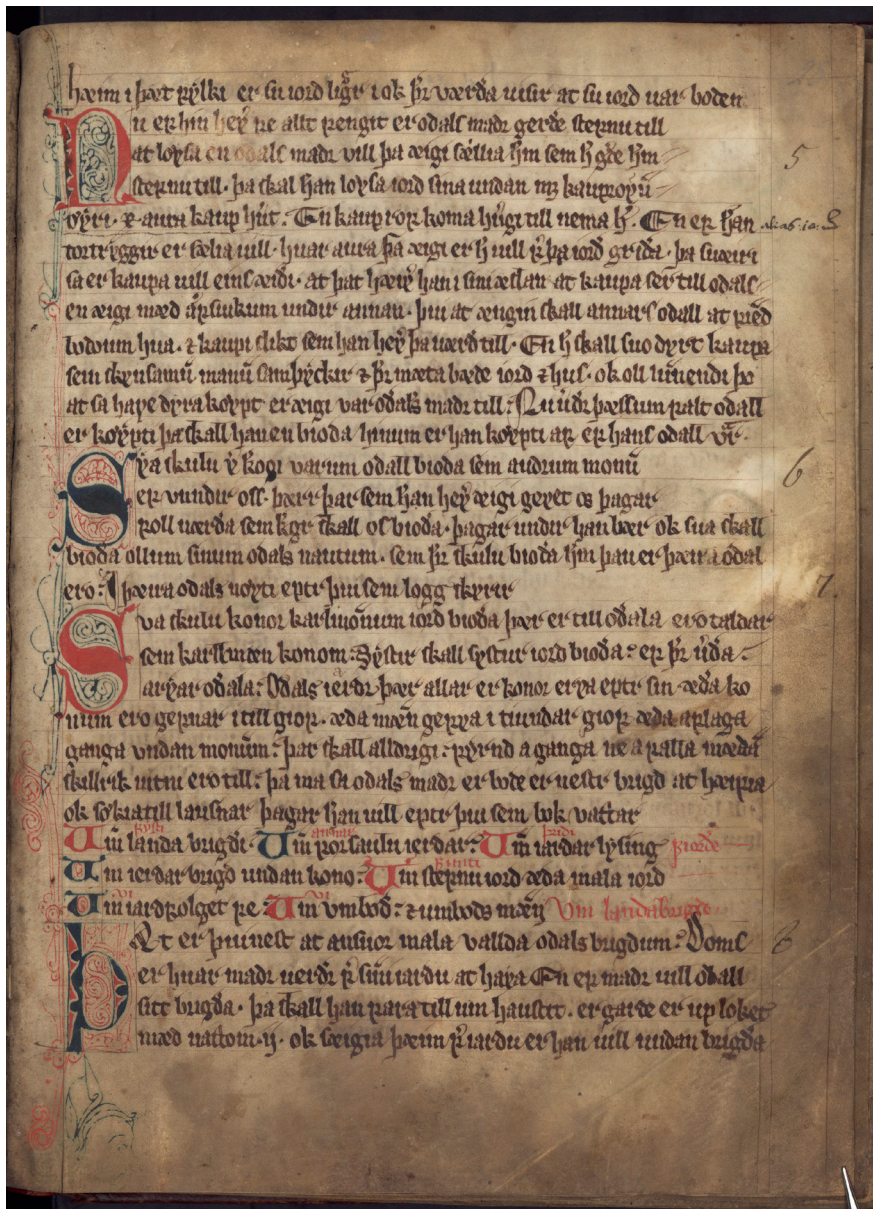 hæim i þæt fylki er su iord liggr i ok þr værda uisir at su iord uar boden
Nu ef hin hefr fe allt fengit er odals madr gerde stefnu till
at loysa en odals madr vill þa æigi sællia hm sem h gde hm
stefnu till. þa skal han loysa iord sina undan mz kaupfoxu
5
vyri. ok aura kaup hut. En kaup for koma hugi till nema h. En ef han
tortryggir er sælia uill. huar aura þa æigi er h uill fr þa iord græida. þa suæri
sa er kaupa uill eins æidi. at þat hæfir han i sini æslan at kaupa ser till odals
en æigi mæd afsiukum undir annan. þui at ængin skall annars odall at fied
lodoum hua. ok kaupi slikt sem han hefr þa uærd till. En h skall suo dyrt kaupa
sem skynsamum manum samþyckir ok þr mæta bæde iord ok hus. ok oll lunnendi þo
at sa hafe dyra koypt er æigi var odals madr till. Nu undir þæssum falt odall
er koypti þa skall han en bioda hinum er han koypti af ef hans odall vr.
Sva skulu ver kogi varum odall bioda sem audrum monum
6
er vundir oss. þæir þar sem han hefr æigi gefet os þagar
foll uærda sem kgr skall os bioda. þagar undir han bær ok sua skall
bioda ollum sinum odals nautum. sem þr skulu bioda hm þau er þæira odal
ero. I þæira odals noyti eptir þui sem logg skyrir
7.
Sva skulu konor karlmonnum iord bioda þær er till odala ero taldar
sem karllmæn konom. Systir skall systur iord bioda. ef þr uerda
arfar odala. Odals ierdr þær allar er konor erfa eptir sin æda ko
num ero gefnar i till giof. æda mæn gefua i tiundar giof æda aflaga
ganga vndan monum. þar skall alldrigi fyrnd a ganga ne a falla mædan
skillrik uitni ero till. þa ma sa odals madr er bode er nestr brigd at hæifta
ok sokia till lausnar þagar han uill eptir þui sem bok vattar
Um landa brigdi. Um forsaulu ierdar. Um iardar lysing fiorde
Um ierdar brigd undan kono. Um stefnu iord æda mala iord
Um iardfolget fe. Um vmbod. ok umbods mæn Vm landabrigde
þat er þui nest at ansuor mala vallda odals brigdum. Doms
8
er huar madr uerdr fr sinni iardu at hafa En ef madr uill odall
sitt brigda. þa skall han fara till um haustit. er garde er up loket
mæd nattom .ij. ok sæigia þæim fr iardu er han uill undan brigda